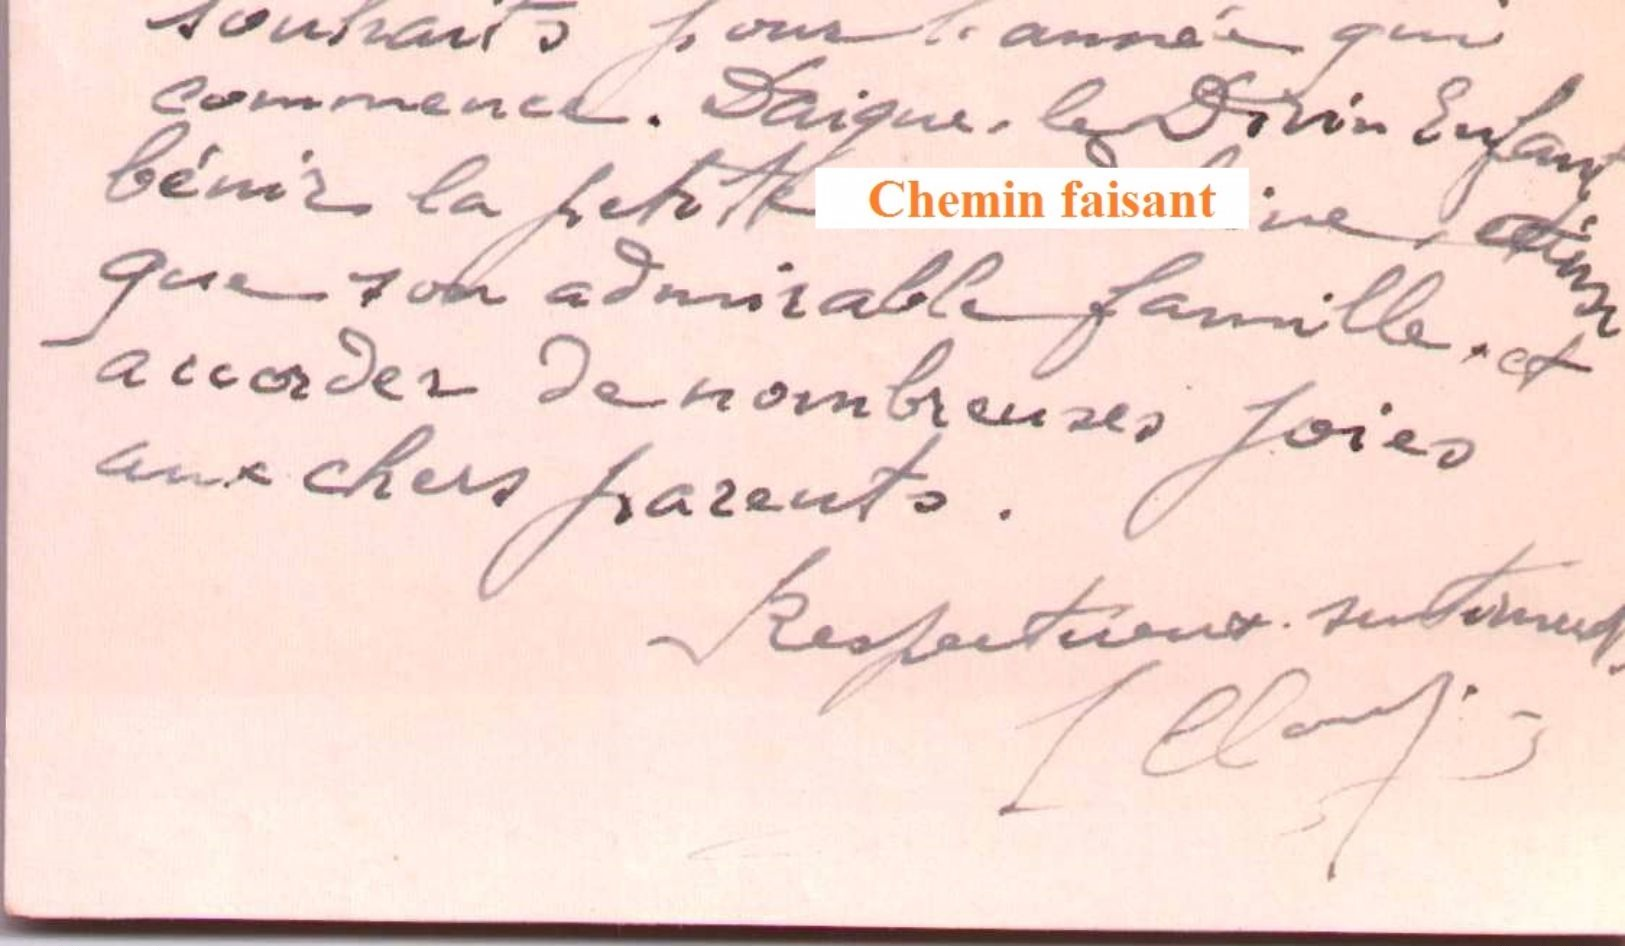 souhaits pour l'année qui
commence. Daigne le Divin Enfant
bénir la petite Chemin faisant ine, ainsi
que son admirable famille, et
accorder de nombreuses joies
aux chers parents.
Respectueux sentiments